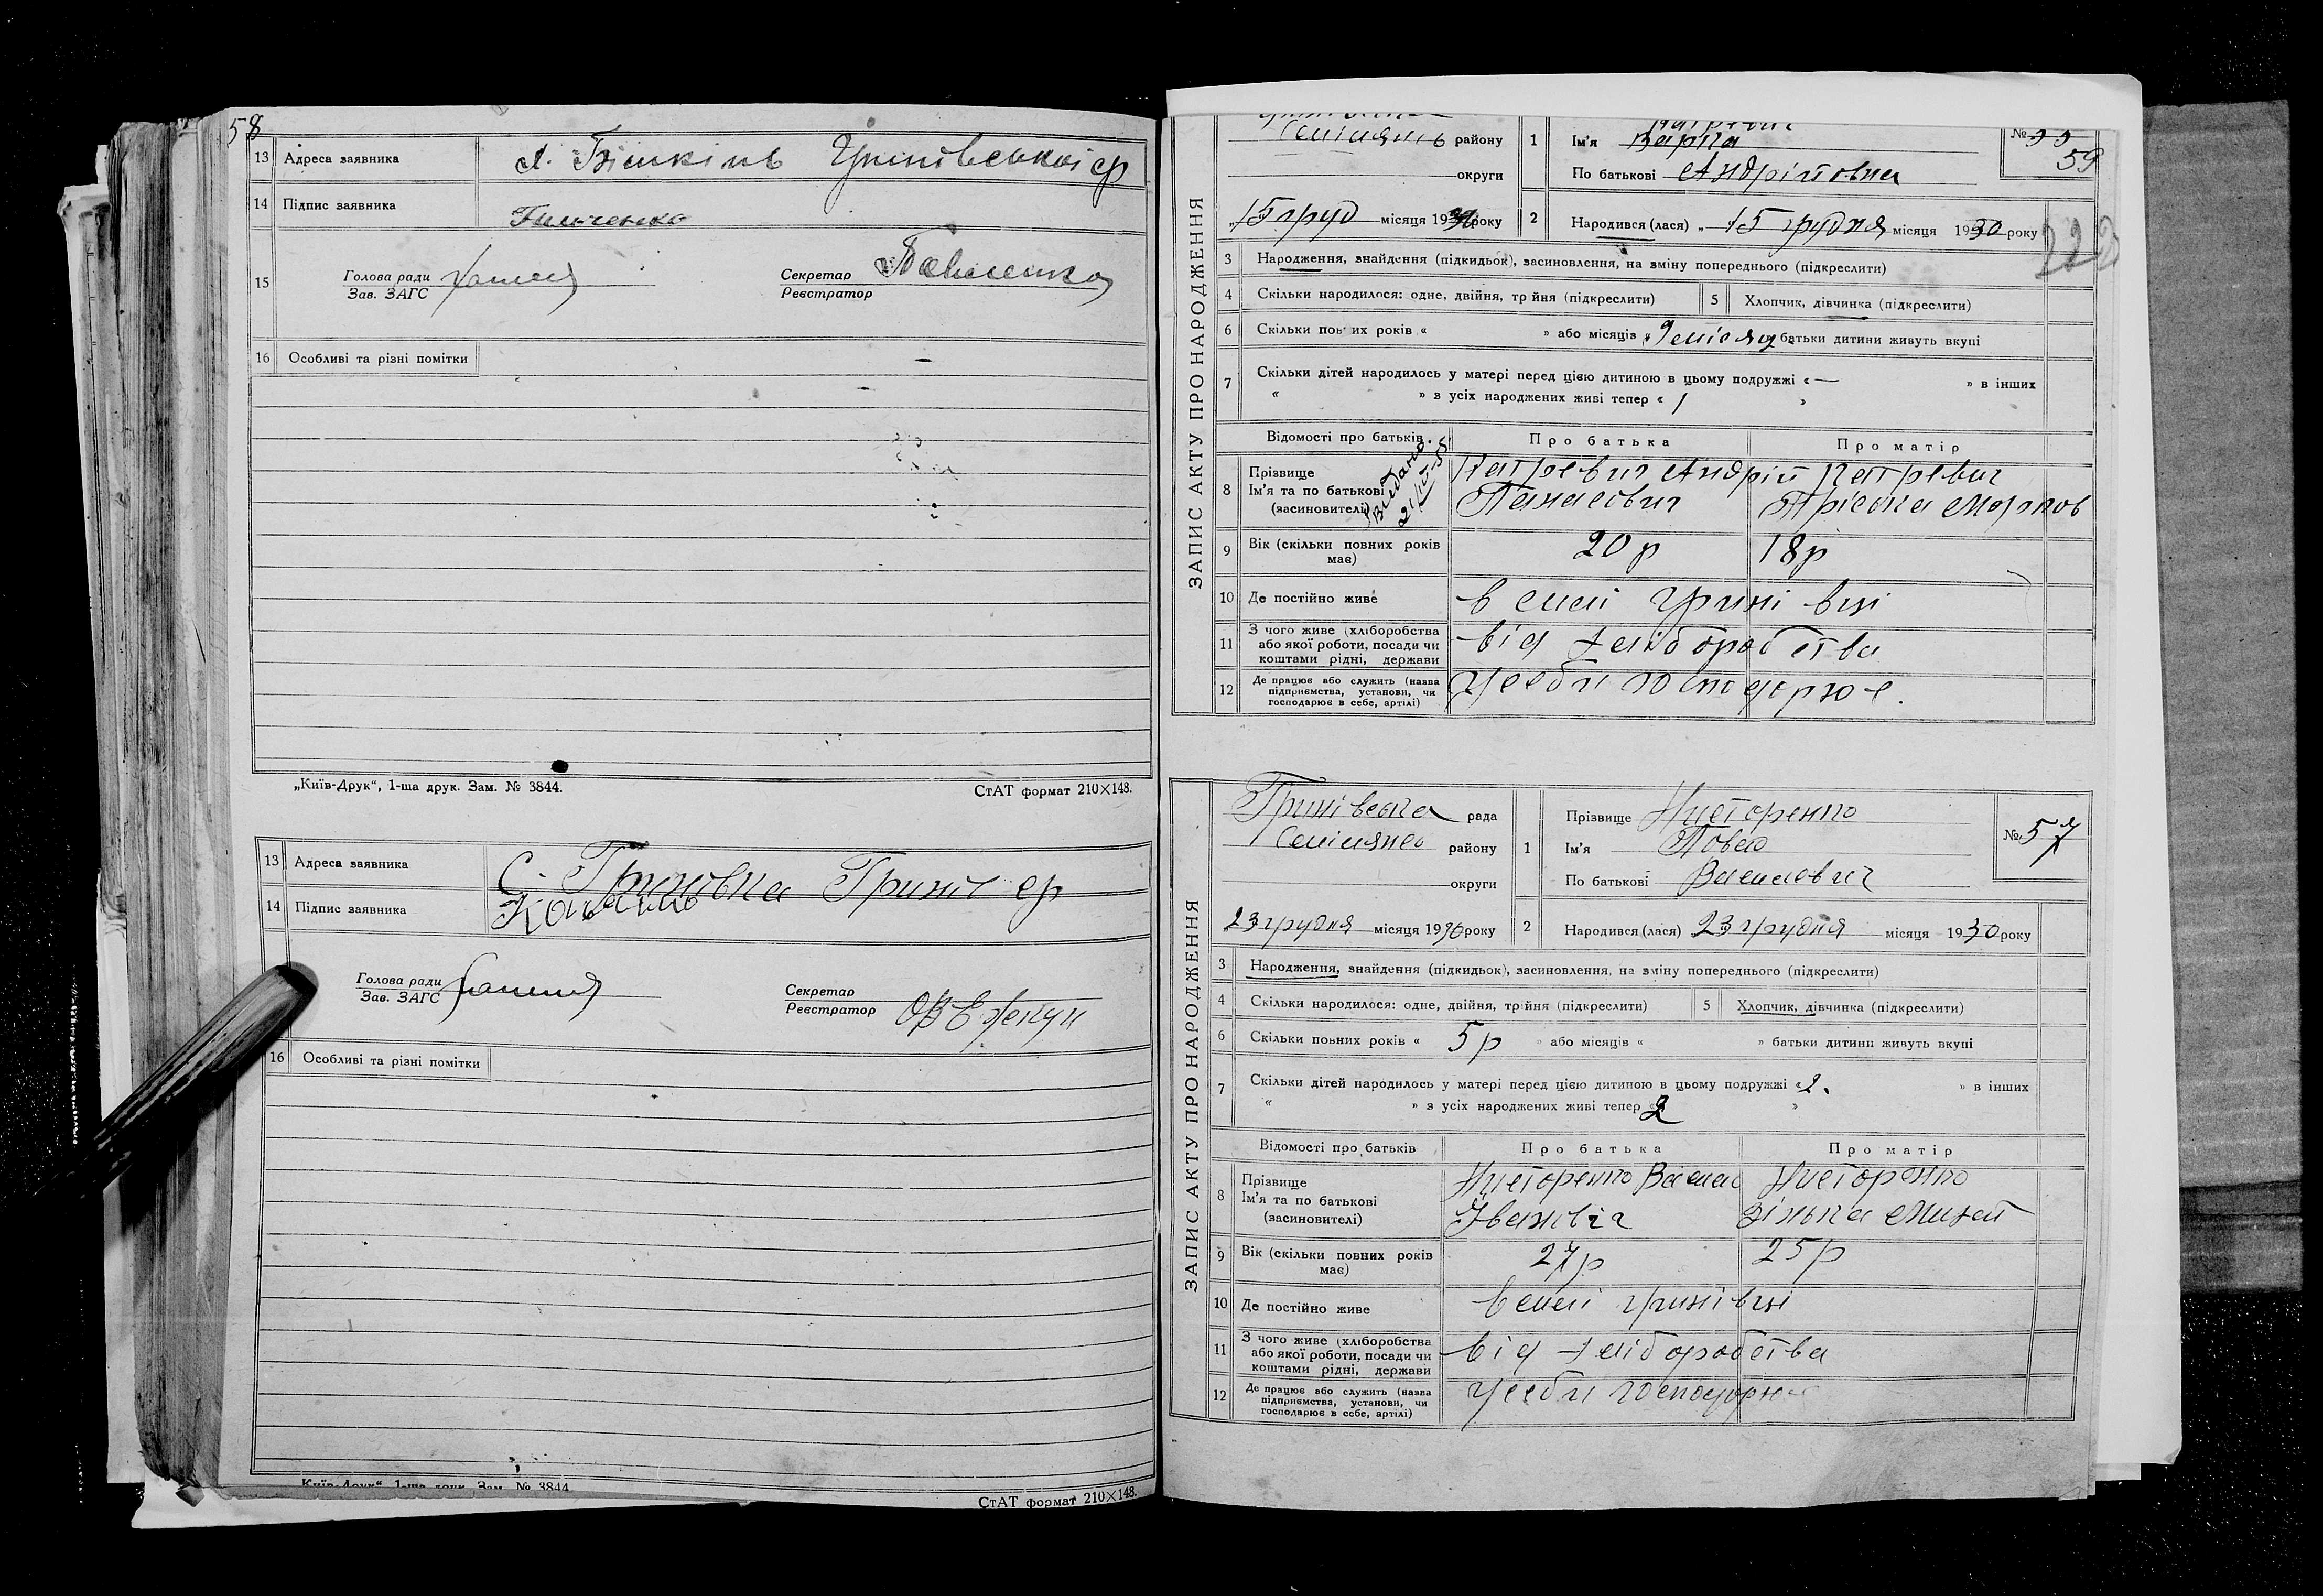 58
13 Адреса заявника х. Біликінь Гринівської ср
14 Підпис заявника
15 Голова ради Секретар Павленко
Зав. ЗАГС Реєстратор
16 Особливі та різні помітки —
„Київ-Друк“, 1-ша друк. Зам. № 3844. СтАТ формат 210×148.
13 Адреса заявника С. Гринівка Гринів ср
14 Підпис заявника
Голова ради Секретар
Зав. ЗАГС Реєстратор
16 Особливі та різні помітки
„Київ-Друк“, 1-ша друк. Зам. № 3844
СтАТ формат 210×148.
ЗАПИС АКТУ ПРО НАРОДЖЕННЯ
району 1 Ім'я Варка №
59
округи По батькові Андріївна
„15 груд місяця 1930 року 2 Народився (лася) „15 грудня місяця 1930 року
222
3 Народження, знайдення (підкидьок), засиновлення, на зміну попереднього (підкреслити)
4 Скільки народилося: одне, двійня, трійня (підкреслити) 5 Хлопчик, дівчинка (підкреслити)
6 Скільки повних років « » або місяців «9 місяц» батьки дитини живуть вкупі
7 Скільки дітей народилось у матері перед цією дитиною в цьому подружжі « — » в інших
« » з усіх народжених живі тепер « 1 »
Відомості про батьків Про батька Про матір
Видано 21/IV-55
8 Прізвище
Ім'я та по батькові
(засиновителі)
Патревич Андрій Панасович
Патревич Пріська Марков
9 Вік (скільки повних років має) 20 р 18 р
10 Де постійно живе в селі Гринівці
11 З чого живе (хліборобства
або якої роботи, посади чи
коштами рідні, держави
від хліборобства
12 Де працює або служить (назва
підприємства, установи, чи
господарює в себе, артілі)
у себе господорює.
ЗАПИС АКТУ ПРО НАРОДЖЕННЯ
Гринівська рада 1 Прізвище Нисторенко № 57
району Ім'я Повло
округи По батькові Васильович
23 грудня місяця 1930 року 2 Народився (лася) 23 грудня місяця 1930 року
3 Народження, знайдення (підкидьок), засиновлення, на зміну попереднього (підкреслити)
4 Скільки народилося: одне, двійня, трійня (підкреслити) 5 Хлопчик, дівчинка (підкреслити)
6 Скільки повних років « 5 р » або місяців « » батьки дитини живуть вкупі
7 Скільки дітей народилось у матері перед цією дитиною в цьому подружжі «2. » в інших
« » з усіх народжених живі тепер «2 »
Відомості про батьків Про батька Про матір
8 Прізвище
Ім'я та по батькові
(засиновителі)
Нисторенко Васил Івановіч
Нисторенко Зінька Михай
9 Вік (скільки повних років має) 27 р 25 р
10 Де постійно живе в селі Гринівці
11 З чого живе (хліборобства
або якої роботи, посади чи
коштами рідні, держави
від хліборобства
12 Де працює або служить (назва
підприємства, установи, чи
господарює в себе, артілі)
у себе господорює